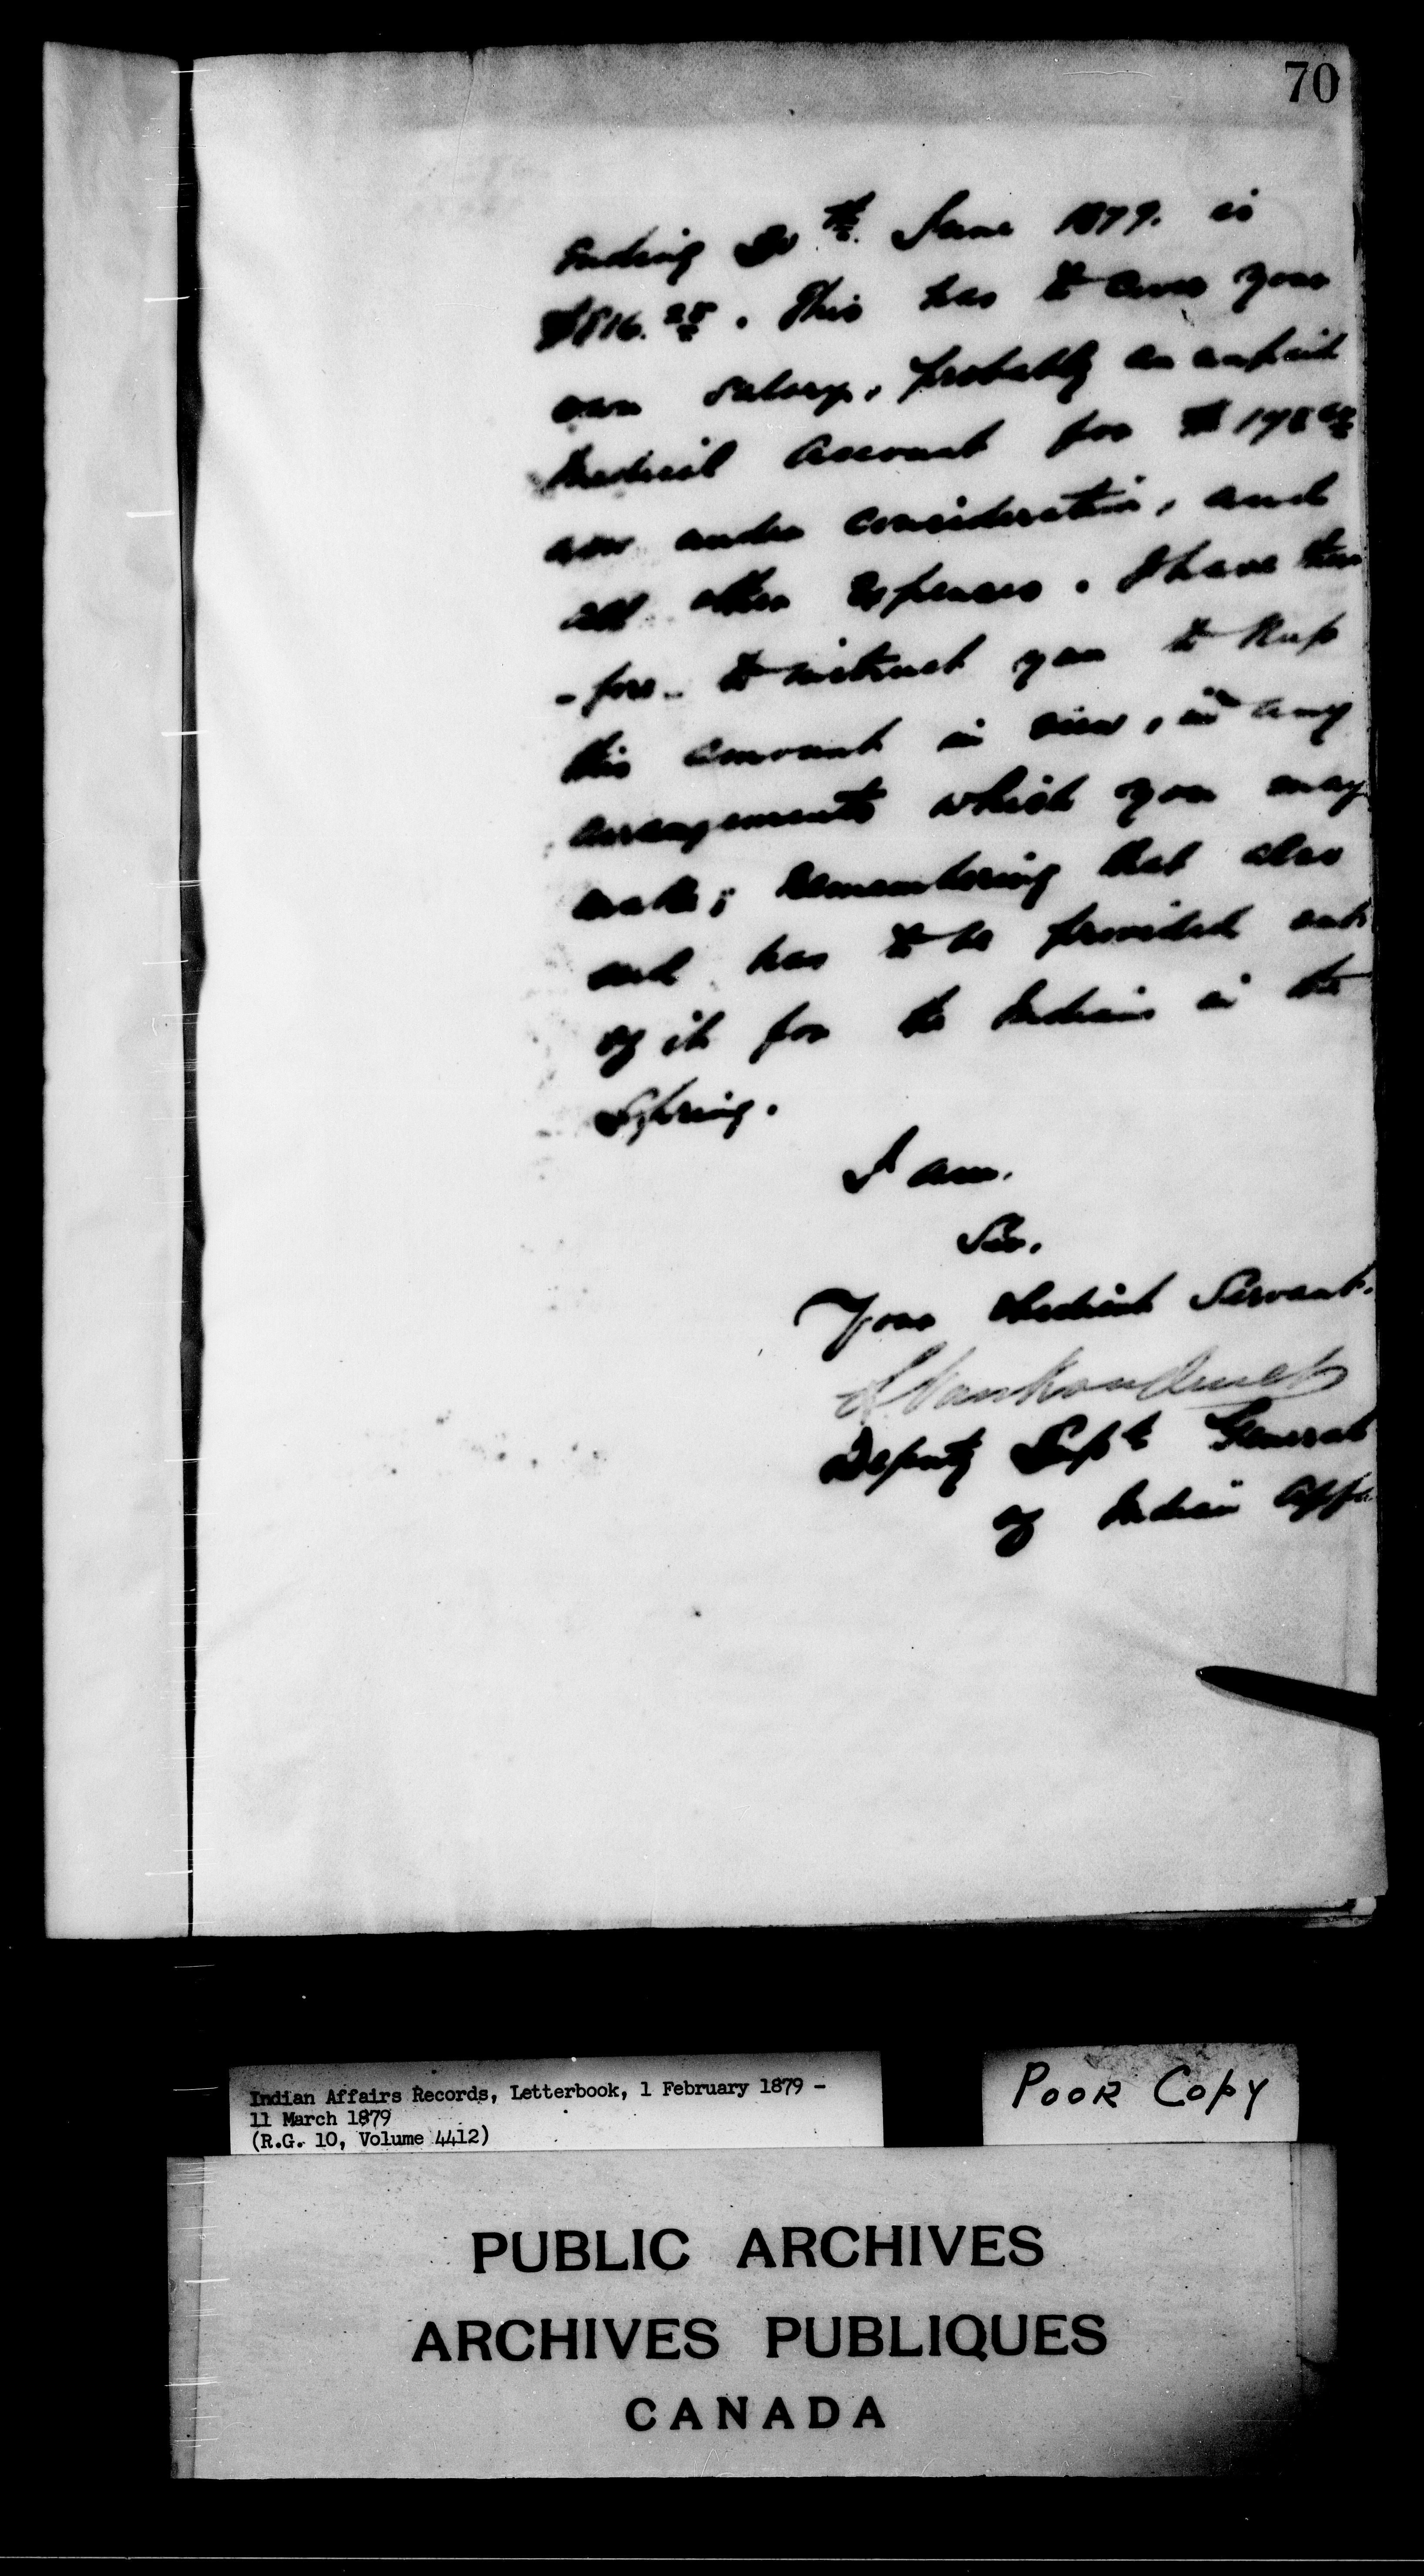 70
ending 30th. June 1879. is
$816.28. This has to cover your
own salary, probably an unpaid
Medical Account for $198
now under consideration, and
all other Expenses. I have there
-fore to instruct you to Keep
this amount in view, in any
arrangements which you may
make; Remembering that also
seed has to be provided out
of it for the Indians in the
Spring.
I am.
Sir.
Your Obedient Servant.
L Vankoughnet
Deputy Supt General
of Indian Aff
Indian Affairs Records, Letterbook, 1 February 1879 -
11 March 1879
(R.G. 10, Volume 4412)
POOR COPY
PUBLIC ARCHIVES
ARCHIVES PUBLIQUES
CANADA